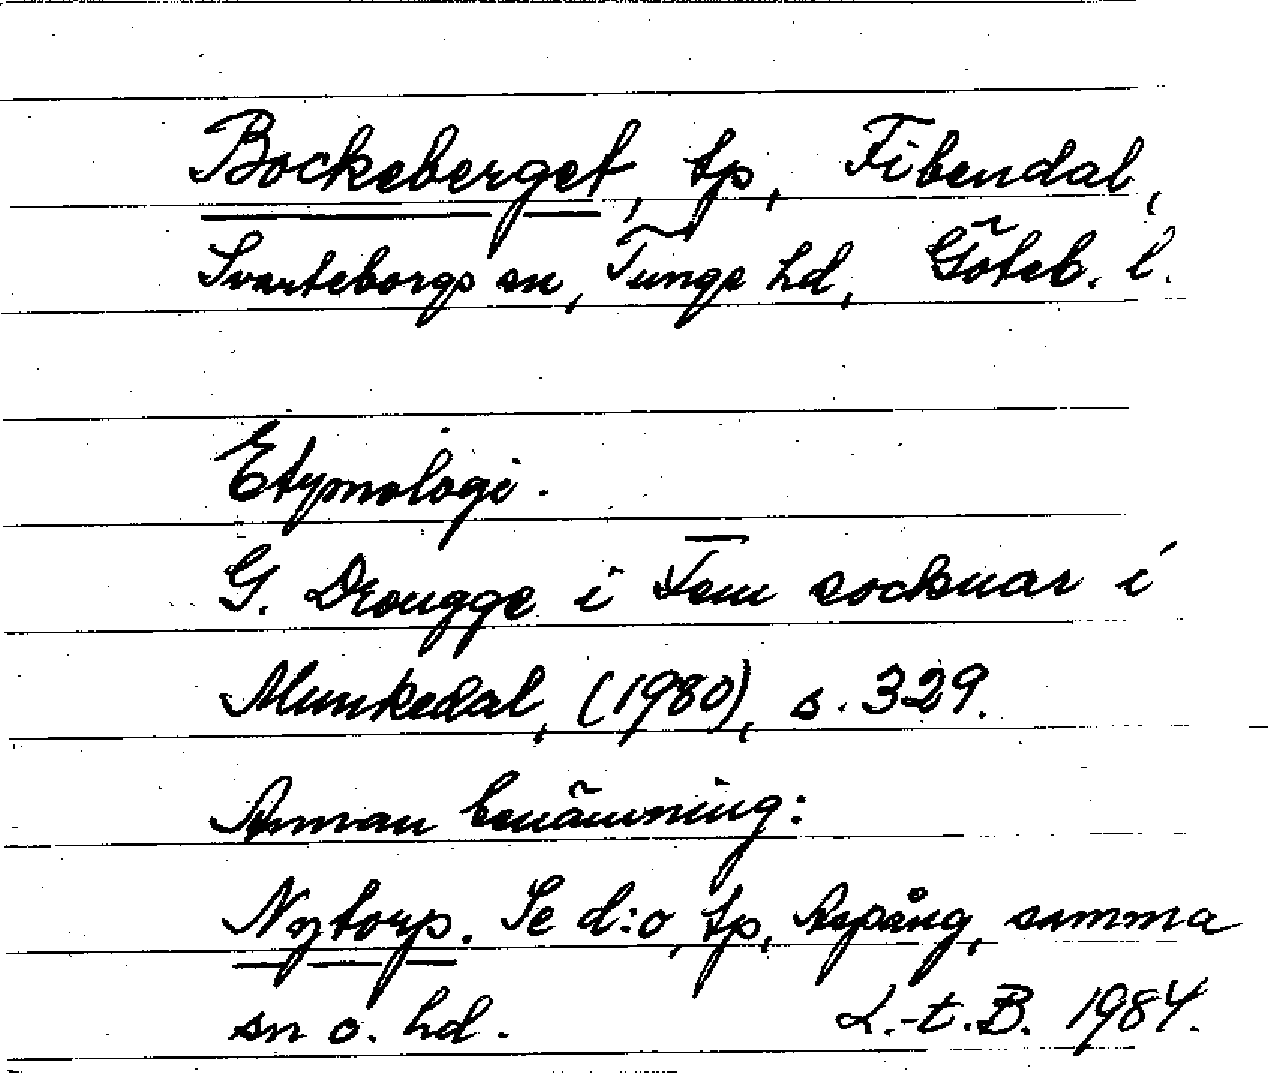 Bockeberget, tp, Fibendal,
Svarteborgs sn, Tunge hd, Göteb. l.
Etymologi.
G. Drougge i Fem socknar i
Munkedal, (1980), s. 329.
Annan benämning:
Nytorp. Se d:o, tp, Aspäng, samma
sn o. hd. L.-t.B. 1984.